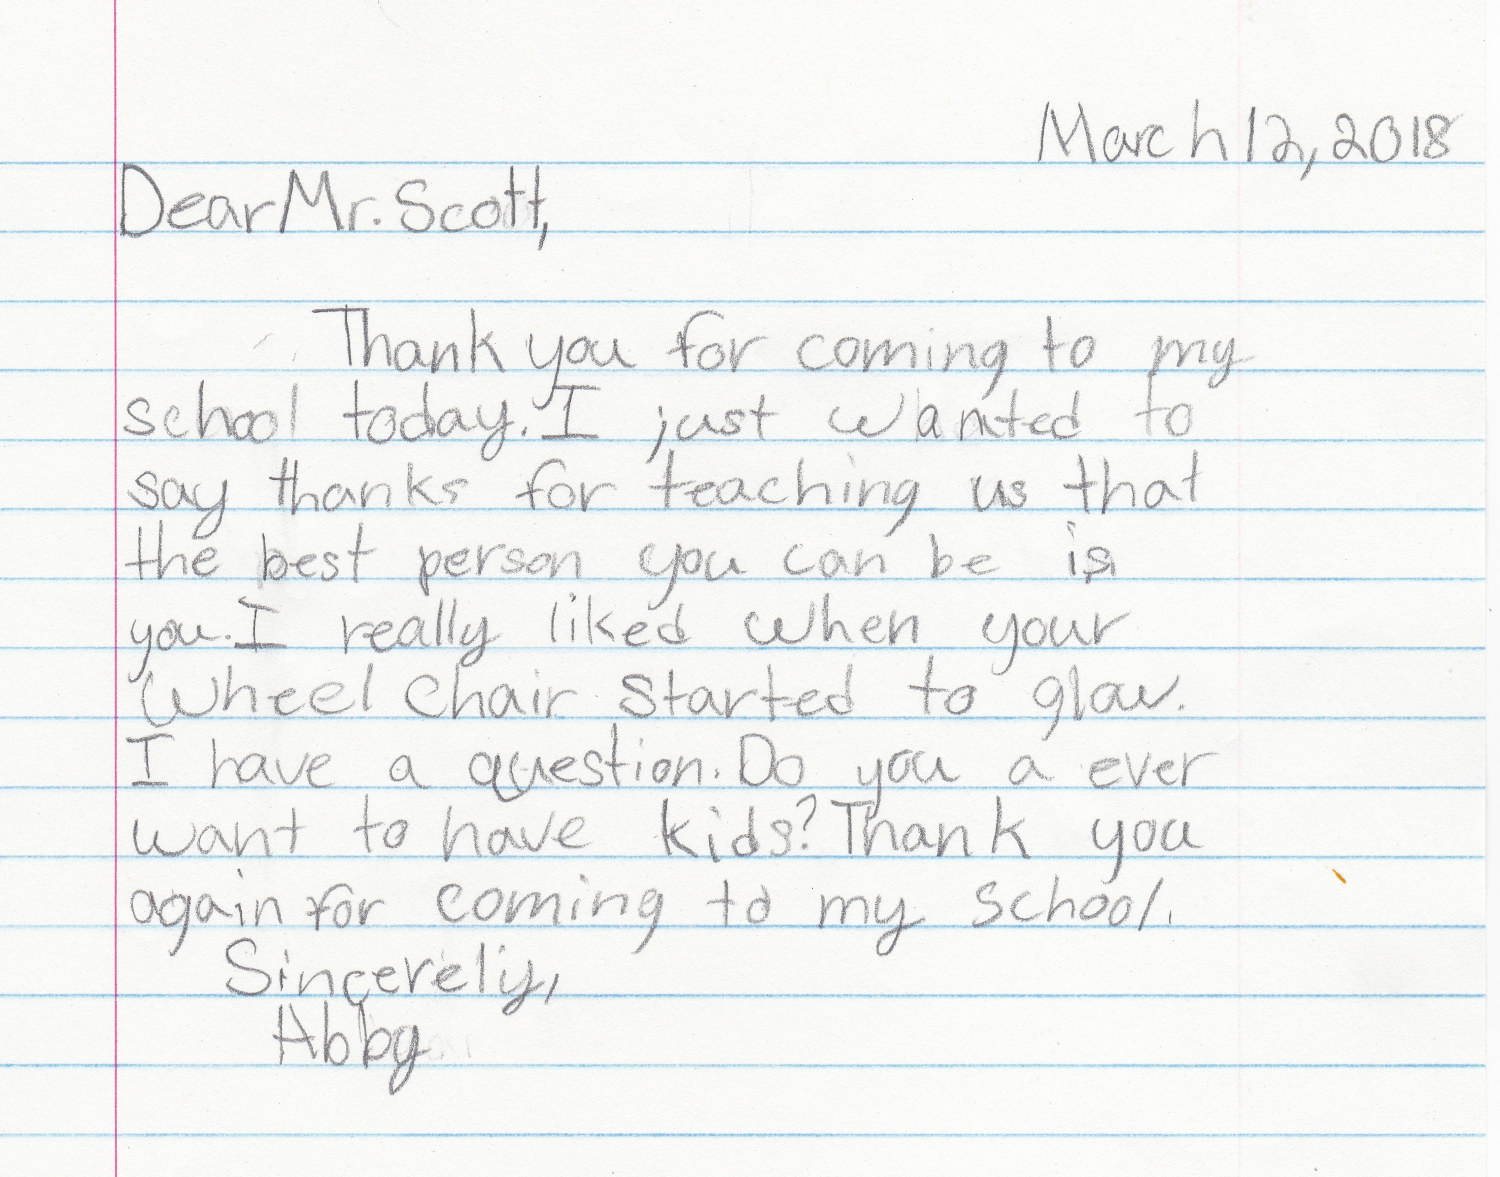 March 12, 2018
Dear Mr. Scott,
Thank you for coming to my
school today. I just wanted to
say thanks for teaching us that
the best person you can be is
you. I really liked when your
Wheel Chair started to glow.
I have a question. Do you a ever
want to have kids? Thank you
again for coming to my school.
Sincerely,
Abby